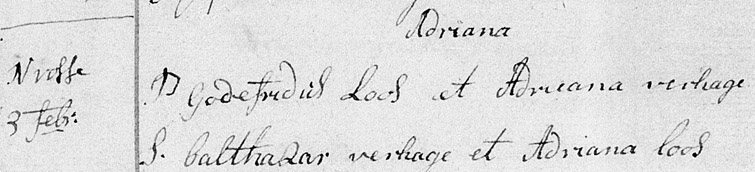 Adriana
Nvosse
3 febr:
P Godefridus Loos et Adrieana verhage
S. balthazar verhage et Adriana loos